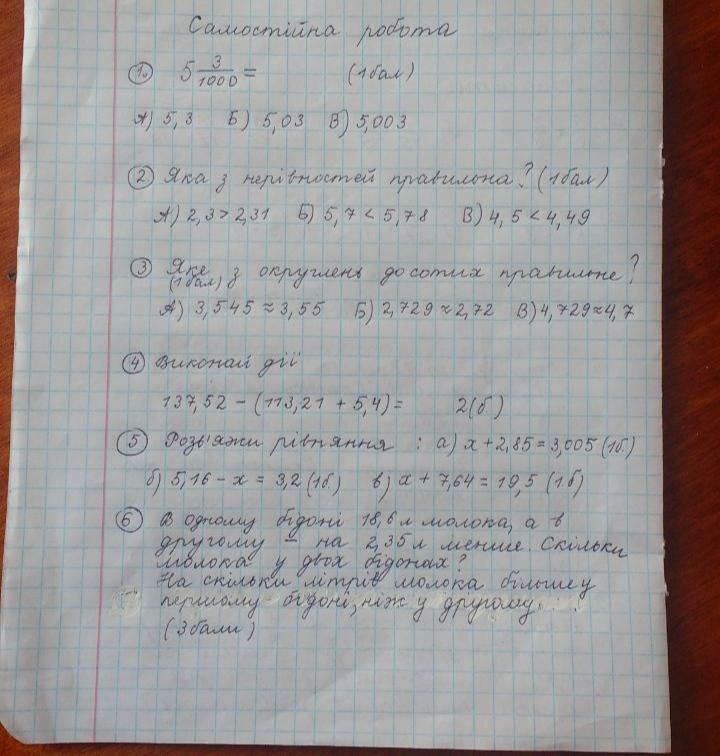 Самостійна робота
1. 5 3/1000 = (1бал)
А) 5,3 Б) 5,03 В) 5,003
2 Яка з нерівностей правильна? (1бал)
А) 2,3 > 2,31 Б) 5,7 < 5,78 В) 4,5 < 4,49
3 Яке з округлень до сотих правильне?
(1бал)
А) 3,545 ≈ 3,55 Б) 2,729 ≈ 2,72 В) 4,729 ≈ 4,7
4 Виконай дії
137,52 - (113,21 + 5,4) = 2(б.)
5 Розв'яжи рівняння : а) x + 2,85 = 3,005 (1б.)
б) 5,16 - x = 3,2 (1б.) в) x + 7,64 = 19,5 (1.б)
6 В одному бідоні 18,6 л молока, а в
другому – на 2,35 л менше. Скільки
молока у двох бідонах?
На скільки літрів молока більше у
першому бідоні, ніж у другому.
(3бали)